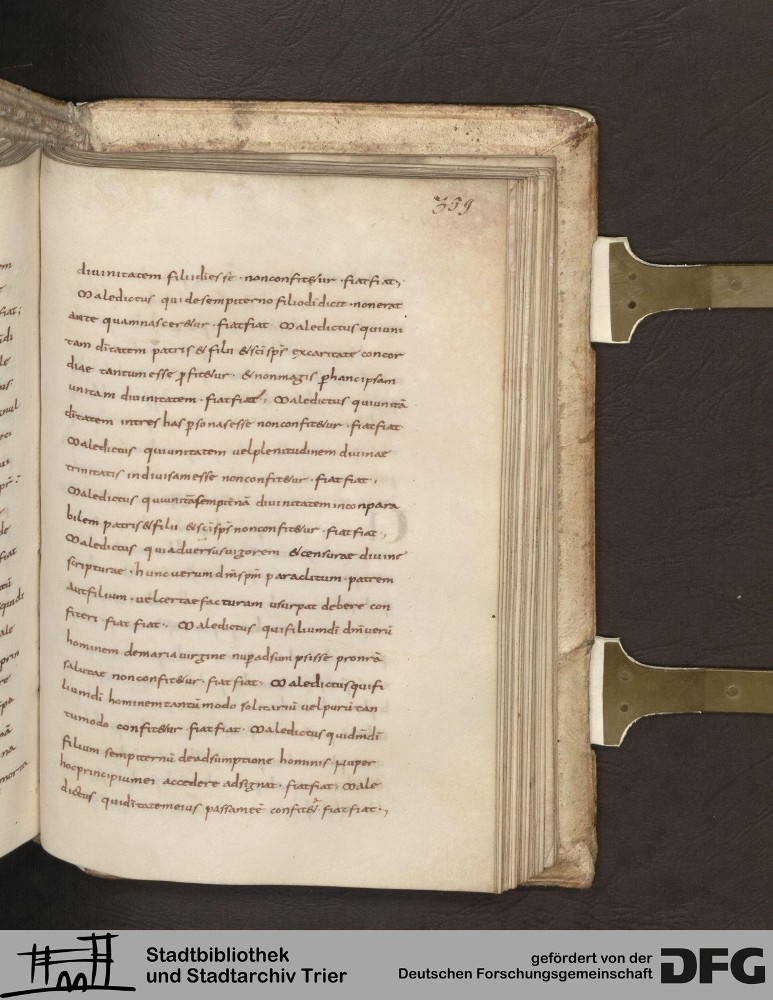 339
diuinitatem filii di esse · non confitetur · fiat fiat ·,
Maledictus qui de sempiterno filio di dicit · non erat
ante quam nasceretur · fiat fiat Maledictus qui uni
tam ditatem patris & filii & sci sps ex caritate concor
diae tantum esse profitetur · & non magis per hanc ipsam
unitam diuinitatem · fiat fiat ·, Maledictus qui unitā
ditatem in tres has personas esse non confitetur · fiat fiat
Maledictus qui unitatem uel plenitudinem diuinae
trinitatis indiuisam esse non confitetur · fiat fiat ·,
Maledictus qui unitā sempternā diuinitatem inconpara
bilem patris & filii & sci sps non confitetur · fiat fiat ·,
Maledictus qui aduersus uigorem & censurae diuine
scripturae · hunc uerum dm spm paraclitum · patrem
aut filium · uel certae facturam usurpat debere con
fiteri · fiat fiat ·, Maledictus qui filium di dm uerū
hominem de maria uirgine nup adsumpsisse pro nrā
salutae non confitetur · fiat fiat · Maledictus qui fi
lium di hominem tantū modo solitariū uel purū tan
tumodo confitetur · fiat fiat · Maledictus qui dm di
filium sempiternū de adsumptione hominis nuper
hoc principium ei accedere adsignat · fiat fiat · Male
dictus qui ditatem eius passam eē confitetr · fiat fiat ·,
Stadtbibliothek
und Stadtarchiv Trier
gefördert von der
Deutschen Forschungsgemeinschaft
DFG